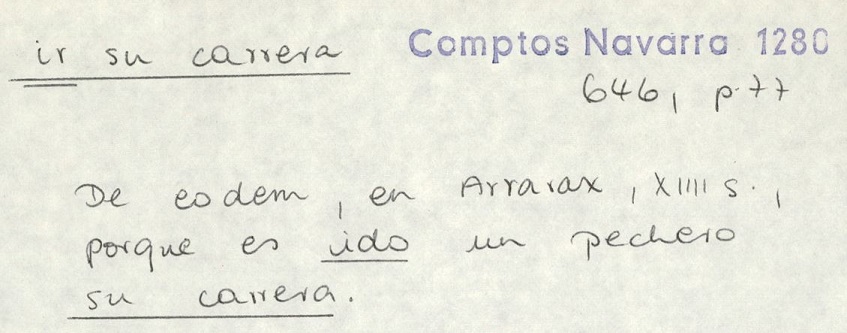 ir su carrera
Comptos Navarra 1280
646, p. 77
De eodem, en Arrarax, XIIII s.,
porque es ido un pechero
su carrera.